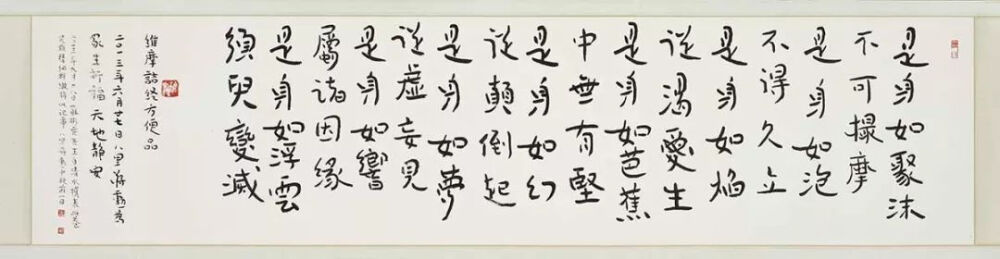 是身如聚沫
不可撮摩
是身如泡
不得久立
是身如焰
從渴愛生
是身如芭蕉
中無有堅
是身如幻
從顛倒起
是身如夢
從虛妄見
是身如響
屬諸因緣
是身如浮雲
須臾變滅
維摩詰經方便品
二〇一三年六月廿七日八里蔣勳
眾生祈福天地靜安